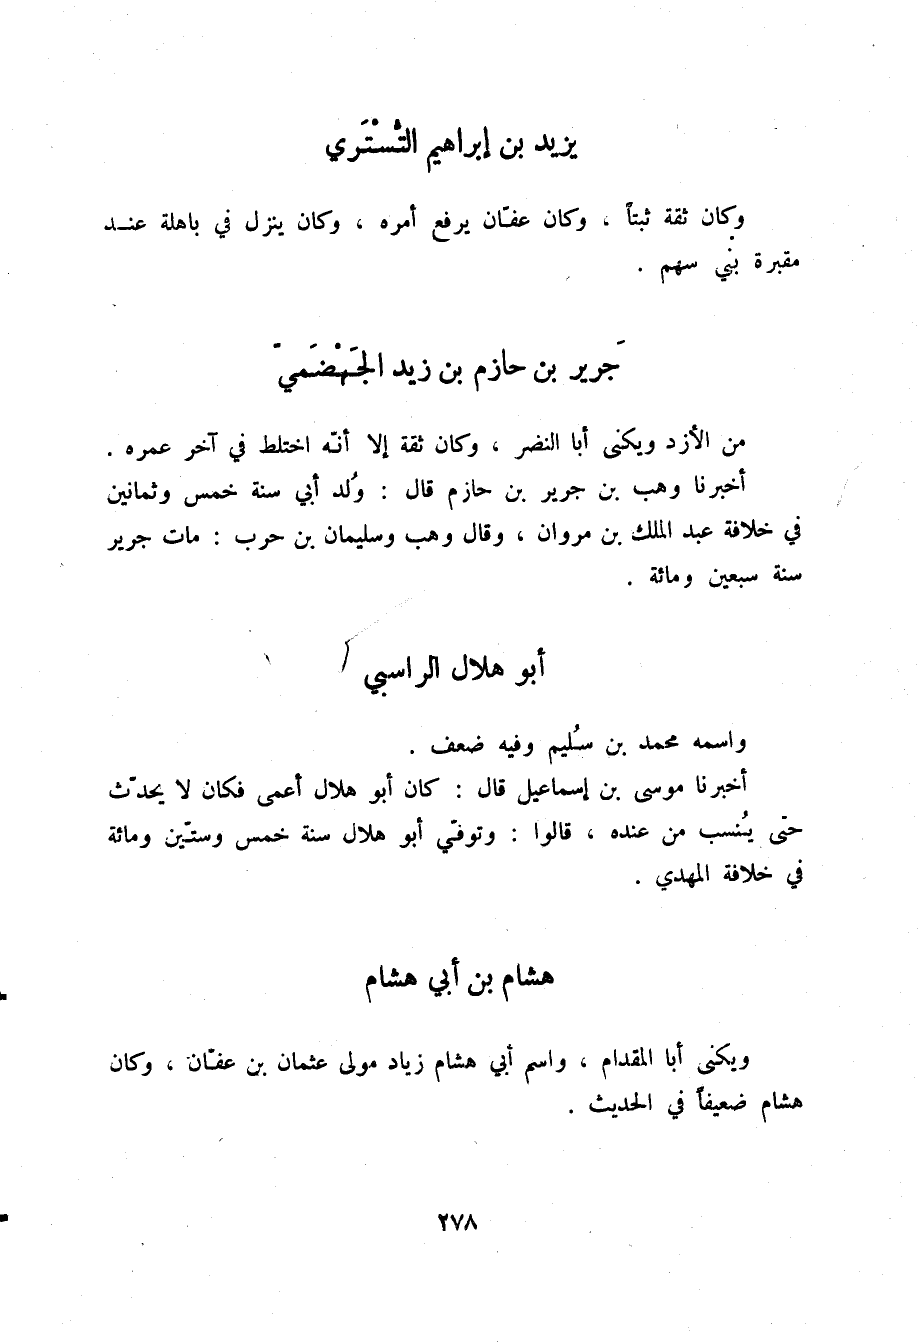 يزيد بن إبراهيم التُسْتَري
وكان ثقة ثبتاً ، وكان عفّان يرفع أمره ، وكان ينزل في باهلة عنـد
مقبرة بني سهم .
جَرير بن حازم بن زيد الجَهْضَميّ
من الأزد ويكنى أبا النضر ، وكان ثقة إلا أنّه اختلط في آخر عمره .
أخبرنا وهب بن جرير بن حازم قال : وُلد أبي سنة خمس وثمانين
في خلافة عبد الملك بن مروان ، وقال وهب وسليمان بن حرب : مات جرير
سنة سبعين ومائة .
أبو هلال الراسبي
واسمه محمد بن سُليم وفيه ضعف .
أخبرنا موسى بن إسماعيل قال : كان أبو هلال أعمى فكان لا يحدّث
حتّى يُنسب من عنده ، قالوا : وتوفّي أبو هلال سنة خمس وستّين ومائة
في خلافة المهدي .
هشام بن أبي هشام
ويكنى أبا المقدام ، واسم أبي هشام زياد مولى عثمان بن عفّان ، وكان
هشام ضعيفاً في الحديث .
٢٧٨